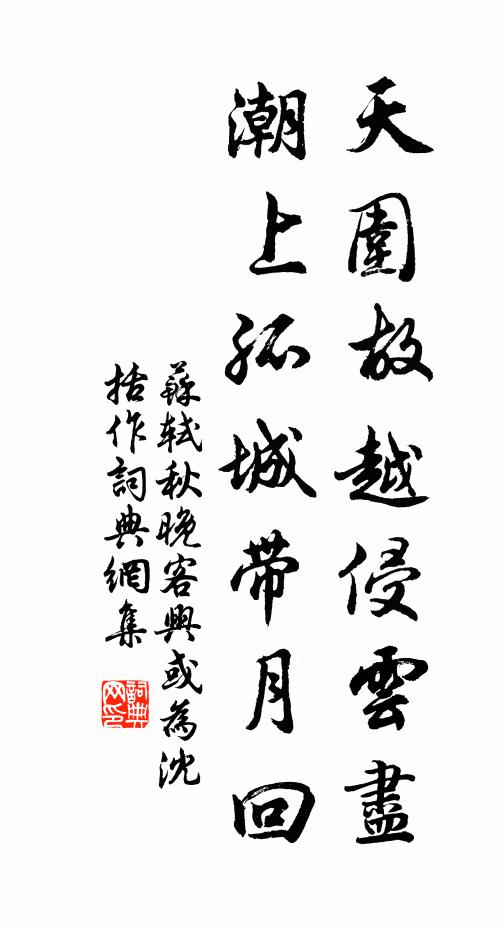 天圍故越侵雲盡
潮上孤城帶月回
蘇軾秋晚客興或為沈
括作詞典網集
詞典
网印